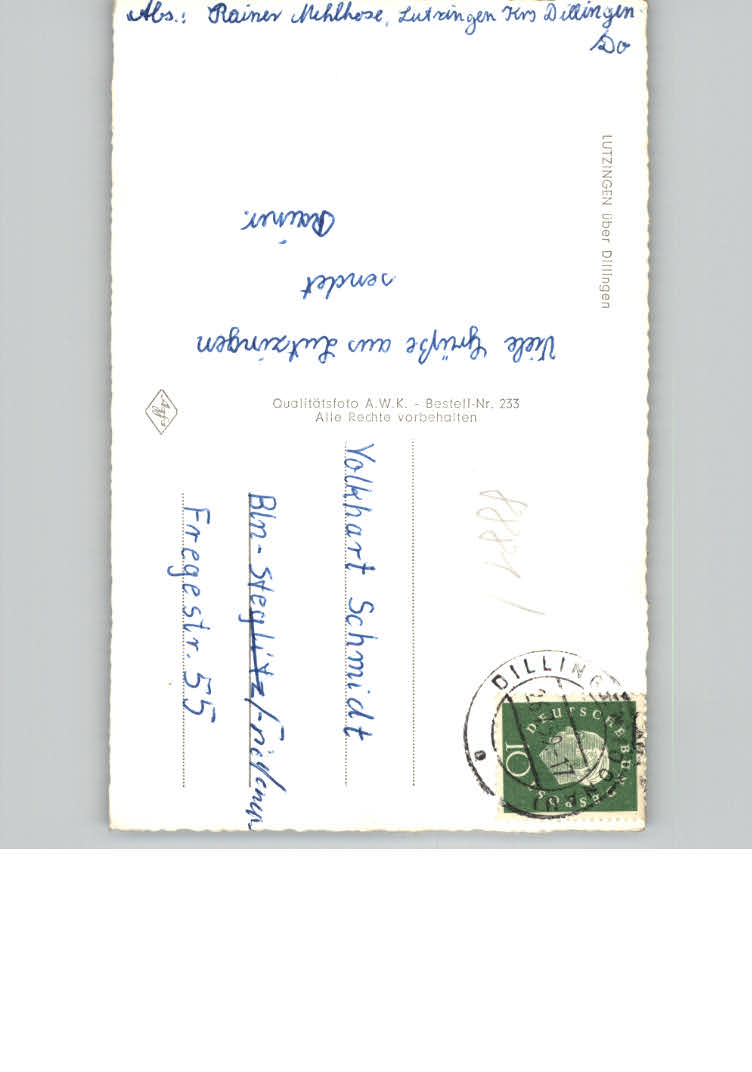 Abs.: Rainer Mehlhose, Lutzingen Krs Dillingen
Do
LUTZINGEN über Dillingen
Viele Grüße aus Lutzingen
sendet
Rainer.
Agfa
Qualitätsfoto A.W.K. - Bestell-Nr. 233
Alle Rechte vorbehalten
Volkhart Schmidt
Bln-Steglitz/Friedenau
Fregestr. 55
DILLINGEN
(DONAU)
DEUTSCHE BUNDESPOST
10